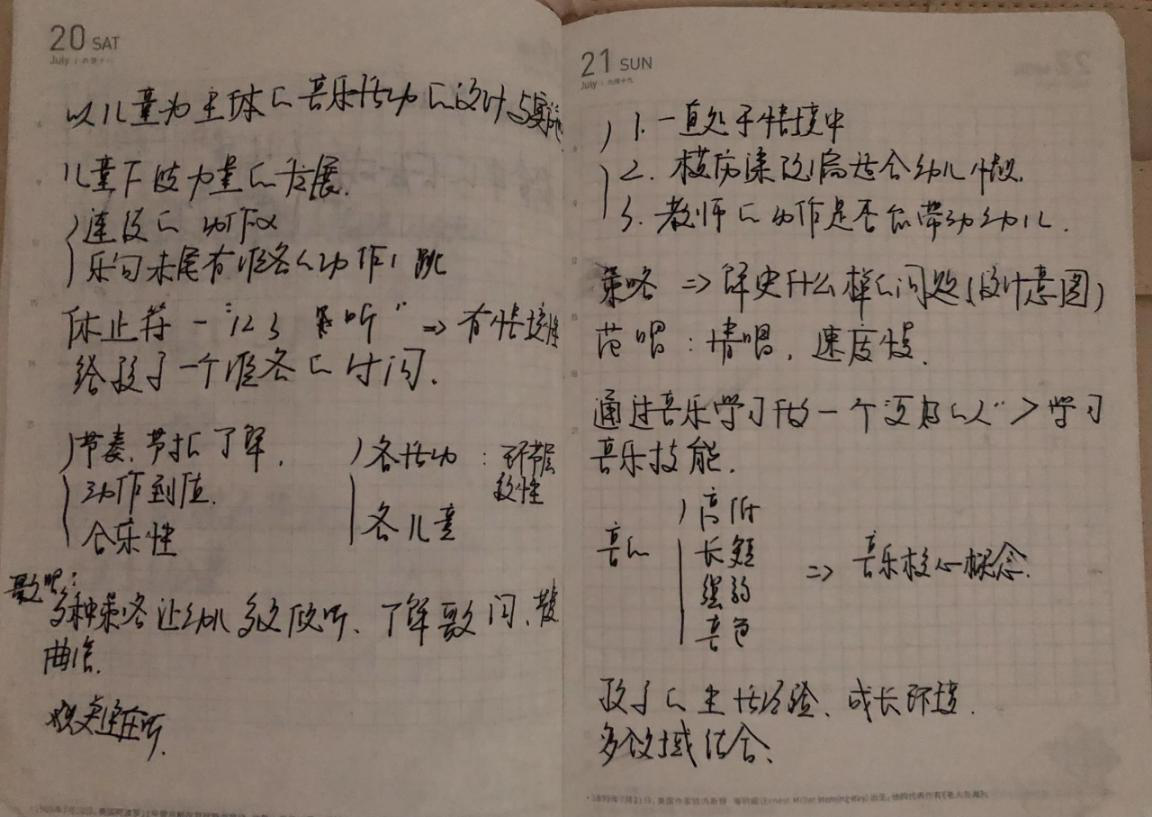 20 SAT
July
以儿童为主体的音乐活动的设计与实施
儿童下肢力量的发展.
连续的动作
乐句末尾有准备的动作, 跳
休止符 — "123 听" => 有情境性
给孩子一个准备的时间.
节奏、节拍的了解.
动作到位.
合乐性
各活动: 环节层
次性
各儿童
歌唱:
多种策略让幼儿多次倾听、了解歌词、
曲谱.
关键在听.
21 SUN
July
1. 一直处于情境中
2. 模仿 适合幼儿情况.
3. 教师的动作是否能带动幼儿.
策略 => 解决什么样的问题(设计意图)
范唱: 清唱, 速度慢.
通过音乐学习做一个"更好的人" > 学习
音乐技能.
音的
高低
长短
强弱
音色
=> 音乐核心概念.
孩子的生活经验、成长环境.
多领域结合、